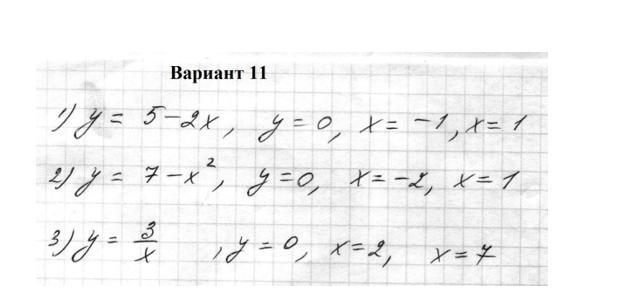 Вариант 11
1) y = 5-2x, y=0, x= -1, x=1
2) y = 7-x², y=0, x=-2, x=1
3) y = 3/x, y=0, x=2, x=7